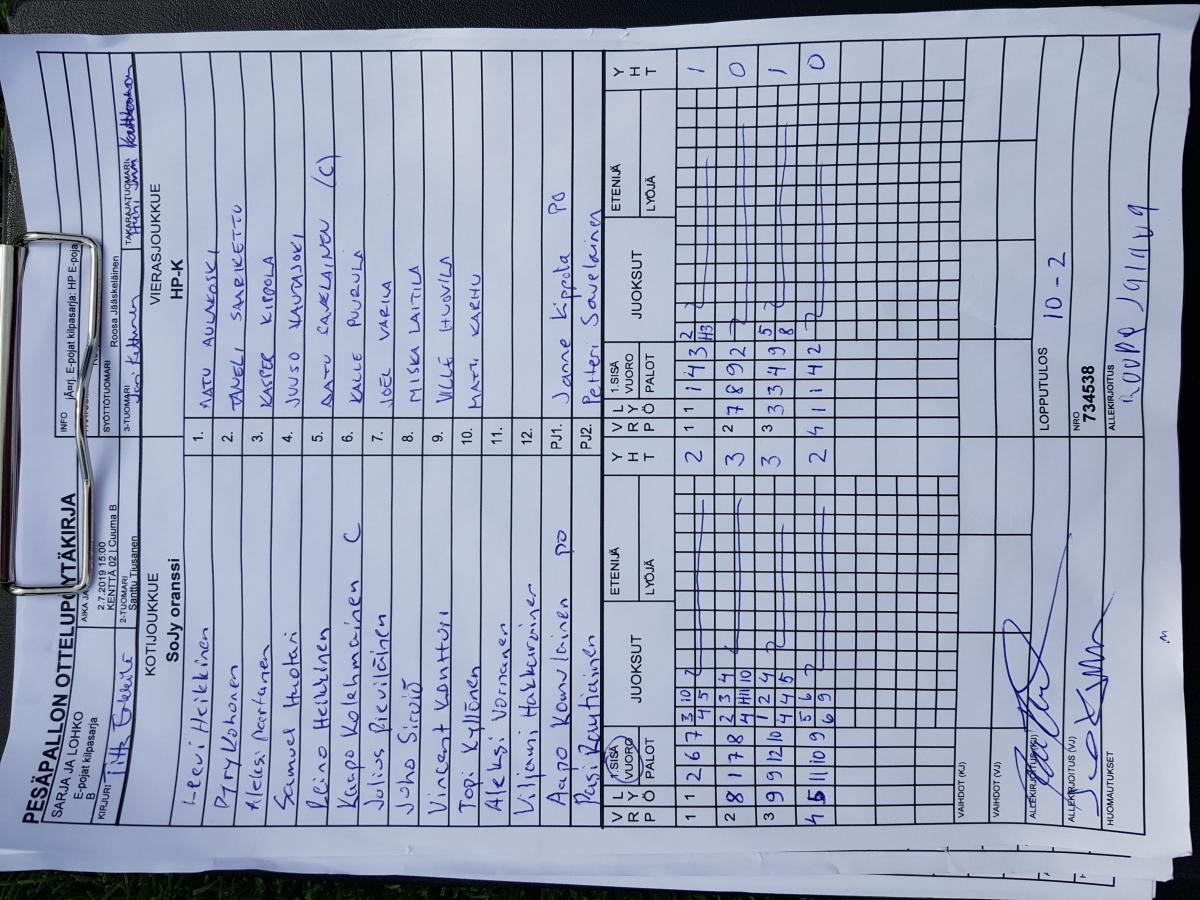 PESÄPALLON OTTELUPÖYTÄKIRJA
SARJA JA LOHKO
E-pojat kilpasarja
B
AIKA JA
2.7.2019 15:00
KENTTÄ 02 | Cuuma B
INFO
jÄ¤rj. E-pojat kilpasarja: HP E-poja
KIRJURI
2-TUOMARI
Santtu Tiusanen
SYÖTTÖTUOMARI
Roosa Jääskeläinen
3-TUOMARI
TAKARAJATUOMARI
KOTIJOUKKUE
SoJy oranssi
VIERASJOUKKUE
HP-K
Leevi Heikkinen 1. AATU AULAKOSKI
Pyry Kohonen 2. TANELI SAARIKETTU
Aleksi Partanen 3. KASPER KIPPOLA
Samuel Huotari 4. JUUSO HAUTAJOKI
Peino Heikkinen 5. AATU SAVELAINEN (C)
Kaapo Kolehmainen C 6. KALLE PUURULA
Julius Pieviläinen 7. JOEL VARILA
Juho Sirviö 8. MISKA LAITILA
Vincent Kontturi 9. VILLE HUOVILA
Topi Kyllönen 10. MATI KARHU
Aleksi Vornanen 11.
Viljami Hakkarainen 12.
Aapo Komulainen PO PJ1. Janne Kippola PO
Pasi Rautiainen PJ2. Petteri Savelainen
VRP LYÖ 1.SISÄ VUORO PALOT JUOKSUT ETENIJÄ LYÖJÄ YHT
VRP LYÖ 1.SISÄ VUORO PALOT JUOKSUT ETENIJÄ LYÖJÄ YHT
1 1 2 6 7 3 10 4 5 2
1 1 1 4 3 2 H3 1
2 8 1 7 8 2 3 4 4 H11 10 3
2 7 8 9 2 0
3 9 9 12 10 1 2 4 4 4 5 3
3 3 3 4 9 5 8 1
4 5 11 10 9 5 6 6 9 2
4 1 1 4 2 0
VAIHDOT (KJ)
VAIHDOT (VJ)
LOPPUTULOS 10-2
ALLEKIRJOITUS (KJ)
ALLEKIRJOITUS (VJ)
NRO
734538
HUOMAUTUKSET
ALLEKIRJOITUS